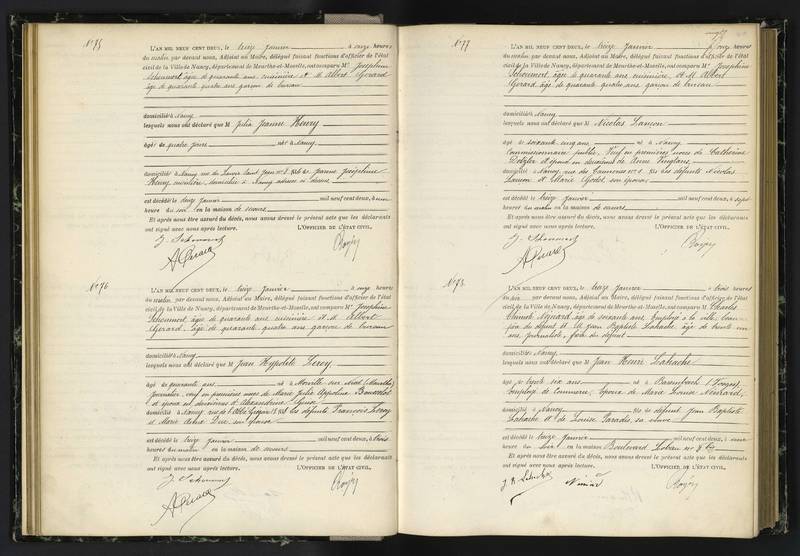 N° 75
L'AN MIL NEUF CENT DEUX, le treize Janvier à onze heures
du matin par devant nous, Adjoint au Maire, délégué faisant fonctions d'officier de l'état
civil de la Ville de Nancy, département de Meurthe-et-Moselle, ont comparu M. Joséphine
Schemmert âgée de quarante ans cuisinière et M. Albert Gérard
âgé de quarante quatre ans garçon de bureau
domiciliés à Nancy
lesquels nous ont déclaré que M Julia Jeanne Henry
âgée de quatre jours né à Nancy
domicilié à Nancy fille de Jeanne Joséphine
Henry domiciliée à Nancy
est décédé le treize Janvier mil neuf cent deux, à
heures du soir en la maison de secours
Et après nous être assuré du décès, nous avons dressé le présent acte que les déclarants
ont signé avec nous après lecture. L'OFFICIER DE L'ÉTAT CIVIL,
J. Schemmert
A Gérard
N° 76
L'AN MIL NEUF CENT DEUX, le treize Janvier à onze heures
du matin par devant nous, Adjoint au Maire, délégué faisant fonctions d'officier de l'état
civil de la Ville de Nancy, département de Meurthe-et-Moselle, ont comparu M. Joséphine
Schemmert âgée de quarante ans cuisinière et M. Albert
Gérard, âgé de quarante quatre ans garçon de bureau
domiciliés à Nancy
lesquels nous ont déclaré que M Jean Hypolite Leroy
âgé de quarante ans né à Morville sur Nied
Journalier, veuf en premières noces de Marie Julie Appoline
et époux en deuxièmes d'Alexandrine
domicilié à Nancy rue de l'Abbé Grégoire fils des défunts François Leroy
et Marie son épouse
est décédé le treize Janvier mil neuf cent deux, à trois
heures du matin en la maison de secours
Et après nous être assuré du décès, nous avons dressé le présent acte que les déclarants
ont signé avec nous après lecture. L'OFFICIER DE L'ÉTAT CIVIL,
J. Schemmert
A Gérard
N° 77
L'AN MIL NEUF CENT DEUX, le treize Janvier à onze heures
du matin par devant nous, Adjoint au Maire, délégué faisant fonctions d'officier de l'état
civil de la Ville de Nancy, département de Meurthe-et-Moselle, ont comparu M. Joséphine
Schemmert, âgée de quarante ans cuisinière, et M. Albert
Gérard, âgé de quarante quatre ans garçon de bureau
domiciliés à Nancy
lesquels nous ont déclaré que M Nicolas
âgé de soixante cinq ans né à Nancy
Commissionnaire public, Veuf en premières noces de Catherine
et époux en deuxièmes de Anne
domicilié à Nancy, rue des fils des défunts Nicolas
et Marie Godot, son épouse
est décédé le treize Janvier mil neuf cent deux, à sept
heures du matin en la maison de secours
Et après nous être assuré du décès, nous avons dressé le présent acte que les déclarants
ont signé avec nous après lecture. L'OFFICIER DE L'ÉTAT CIVIL,
J. Schemmert
A Gérard
N° 78
L'AN MIL NEUF CENT DEUX, le treize Janvier à trois heures
du soir par devant nous, Adjoint au Maire, délégué faisant fonctions d'officier de l'état
civil de la Ville de Nancy, département de Meurthe-et-Moselle, ont comparu M. Charles
âgé de soixante ans, Employé à la ville, beau
père du défunt et M. Jean Baptiste Lahache âgé de trente un
ans, journaliste, frère du défunt
domiciliés à Nancy
lesquels nous ont déclaré que M Jean Henri Lahache
âgé de trente six ans né à (Vosges)
Employé de Commerce, époux de Marie Louise
domicilié à Nancy fils de défunt Jean Baptiste
Lahache et de Louise Paradis, sa veuve
est décédé le treize Janvier mil neuf cent deux, à une
heure du soir en la maison Boulevard Lobau
Et après nous être assuré du décès, nous avons dressé le présent acte que les déclarants
ont signé avec nous après lecture. L'OFFICIER DE L'ÉTAT CIVIL,
J. B. Lahache